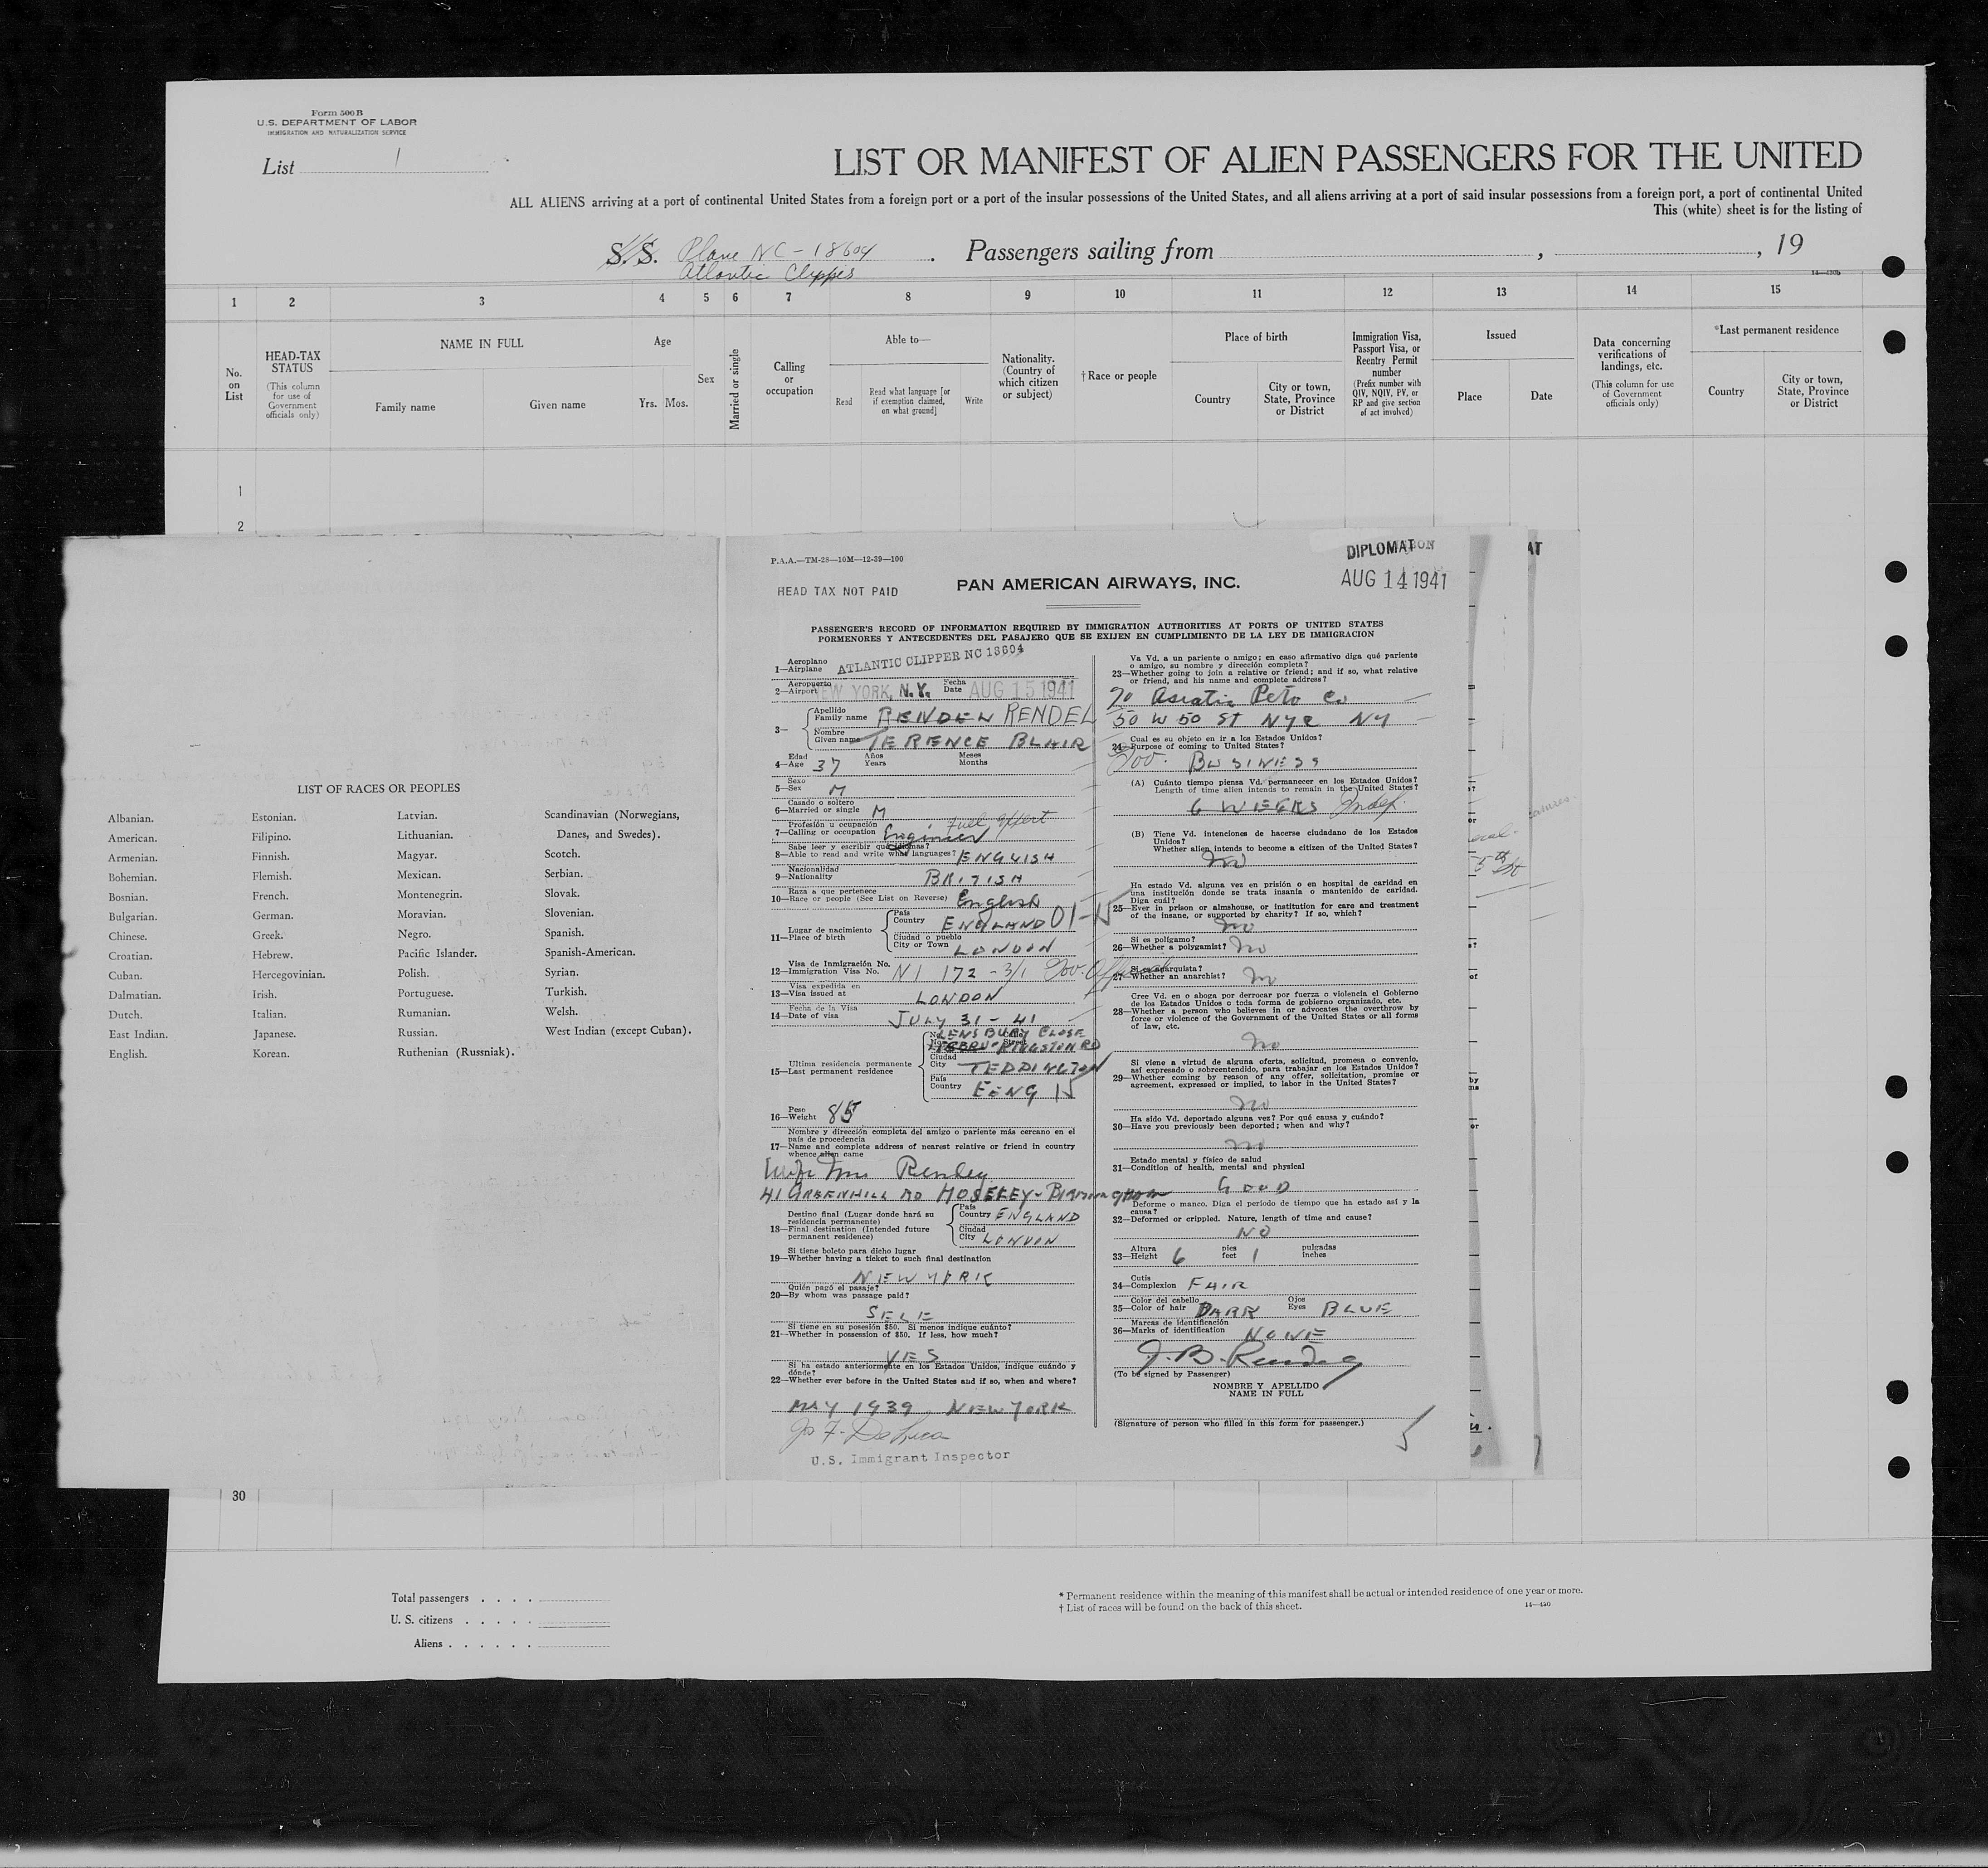 Form 500 B
U.S. DEPARTMENT OF LABOR
IMMIGRATION AND NATURALIZATION SERVICE
List 1
LIST OR MANIFEST OF ALIEN PASSENGERS FOR THE UNITED
ALL ALIENS arriving at a port of continental United States from a foreign port or a port of the insular possessions of the United States, and all aliens arriving at a port of said insular possessions from a foreign port, a port of continental United
This (white) sheet is for the listing of
S. S. Plane NC-18604. Passengers sailing from , , 19
Atlantic Clipper
1 2 3 4 5 6 7 8 9 10 11 12 13 14 15
No. on List
HEAD-TAX STATUS
(This column for use of Government officials only)
NAME IN FULL
Family name
Given name
Age
Yrs. Mos.
Sex
Married or single
Calling or occupation
Able to—
Read
Read what language [or if exemption claimed, on what ground]
Write
Nationality. (Country of which citizen or subject)
†Race or people
Place of birth
Country
City or town, State, Province or District
Immigration Visa, Passport Visa, or Reentry Permit number
(Prefix number with QIV, NQIV, PV, or RP and give section of act involved)
Issued
Place
Date
Data concerning verifications of landings, etc.
(This column for use of Government officials only)
*Last permanent residence
Country
City or town, State, Province or District
1
2
LIST OF RACES OR PEOPLES
Albanian.
American.
Armenian.
Bohemian.
Bosnian.
Bulgarian.
Chinese.
Croatian.
Cuban.
Dalmatian.
Dutch.
East Indian.
English.
Estonian.
Filipino.
Finnish.
Flemish.
French.
German.
Greek.
Hebrew.
Hercegovinian.
Irish.
Italian.
Japanese.
Korean.
Latvian.
Lithuanian.
Magyar.
Mexican.
Montenegrin.
Moravian.
Negro.
Pacific Islander.
Polish.
Portuguese.
Rumanian.
Russian.
Ruthenian (Russniak).
Scandinavian (Norwegians,
Danes, and Swedes).
Scotch.
Serbian.
Slovak.
Slovenian.
Spanish.
Spanish-American.
Syrian.
Turkish.
Welsh.
West Indian (except Cuban).
P.A.A.—TM-28—10M—12-39—100
DIPLOMAT
AUG 14 1941
HEAD TAX NOT PAID
PAN AMERICAN AIRWAYS, INC.
PASSENGER'S RECORD OF INFORMATION REQUIRED BY IMMIGRATION AUTHORITIES AT PORTS OF UNITED STATES
PORMENORES Y ANTECEDENTES DEL PASAJERO QUE SE EXIJEN EN CUMPLIMIENTO DE LA LEY DE IMMIGRACION
Aeroplano
1—Airplane ATLANTIC CLIPPER NC 18604
Aeropuerto
2—Airport NEW YORK, N.Y. Fecha Date AUG 15 1941
3— Apellido
Family name RENDEL
Nombre
Given name TERENCE BLAIR
Edad
4—Age 37 Años Years Meses Months
Sexo
5—Sex M
Casado o soltero
6—Married or single M
Profesión u ocupación
7—Calling or occupation Engineer Fuel Expert
Sabe leer y escribir qué idiomas?
8—Able to read and write what languages? ENGLISH
Nacionalidad
9—Nationality BRITISH
Raza a que pertenece
10—Race or people (See List on Reverse) English
Lugar de nacimiento
11—Place of birth
País
Country ENGLAND 01-15
Ciudad o pueblo
City or Town LONDON
Visa de Inmigración No.
12—Immigration Visa No. NI 172 - 3/1 Gov. Official
Visa expedida en
13—Visa issued at LONDON
Fecha de la Visa
14—Date of visa JULY 31 - 41
Ultima residencia permanente
15—Last permanent residence
LENSBURY CLOSE
KINGSTON RD
Ciudad
City TEDDINGTON
País
Country ENG 15
Peso
16—Weight 85
Nombre y dirección completa del amigo o pariente más cercano en el
país de procedencia
17—Name and complete address of nearest relative or friend in country
whence alien came
Wife Mrs
41 GREENHILL RD MOSELEY - Birmingham
Destino final (Lugar donde hará su
residencia permanente)
18—Final destination (Intended future
permanent residence)
País
Country ENGLAND
Ciudad
City LONDON
Si tiene boleto para dicho lugar
19—Whether having a ticket to such final destination
NEW YORK
Quién pagó el pasaje?
20—By whom was passage paid?
SELF
Si tiene en su posesión $50. Si menos indique cuánto?
21—Whether in possession of $50. If less, how much?
YES
Si ha estado anteriormente en los Estados Unidos, indique cuándo y
dónde?
22—Whether ever before in the United States and if so, when and where?
MAY 1939 NEW YORK
U.S. Immigrant Inspector
Va Vd. a un pariente o amigo; en caso afirmativo diga qué pariente
o amigo, su nombre y dirección completa?
23—Whether going to join a relative or friend; and if so, what relative
or friend, and his name and complete address?
Asiatic Petr Co
50 W 50 St NYC NY
Cual es su objeto en ir a los Estados Unidos?
24—Purpose of coming to United States?
Gov. BUSINESS
(A) Cuánto tiempo piensa Vd. permanecer en los Estados Unidos?
Length of time alien intends to remain in the United States?
6 WEEKS Indef.
(B) Tiene Vd. intenciones de hacerse ciudadano de los Estados
Unidos?
Whether alien intends to become a citizen of the United States?
No
Ha estado Vd. alguna vez en prisión o en hospital de caridad en
una institución donde se trata insania o mantenido de caridad.
Diga cuál?
25—Ever in prison or almshouse, or institution for care and treatment
of the insane, or supported by charity? If so, which?
No
Si es polígamo?
26—Whether a polygamist? No
Si es anarquista?
27—Whether an anarchist? No
Cree Vd. en o aboga por derrocar por fuerza o violencia el Gobierno
de los Estados Unidos o toda forma de gobierno organizado, etc.
28—Whether a person who believes in or advocates the overthrow by
force or violence of the Government of the United States or all forms
of law, etc.
No
Si viene a virtud de alguna oferta, solicitud, promesa o convenio,
así expresado o sobreentendido, para trabajar en los Estados Unidos?
29—Whether coming by reason of any offer, solicitation, promise or
agreement, expressed or implied, to labor in the United States?
No
Ha sido Vd. deportado alguna vez? Por qué causa y cuándo?
30—Have you previously been deported; when and why?
No
Estado mental y físico de salud
31—Condition of health, mental and physical
GOOD
Deforme o manco. Diga el período de tiempo que ha estado así y la
causa?
32—Deformed or crippled. Nature, length of time and cause?
NO
Altura
33—Height 6 pies feet 1 pulgadas inches
Cutis
34—Complexion FAIR
Color del cabello
35—Color of hair DARK Ojos Eyes BLUE
Marcas de identificación
36—Marks of identification NONE
(To be signed by Passenger)
NOMBRE Y APELLIDO
NAME IN FULL
(Signature of person who filled in this form for passenger.)
30
Total passengers
U. S. citizens
Aliens
* Permanent residence within the meaning of this manifest shall be actual or intended residence of one year or more.
† List of races will be found on the back of this sheet.